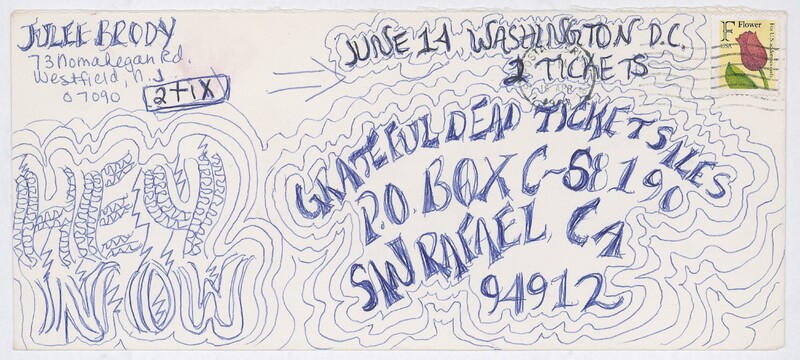 JULIE BRODY
73 Nomahegan Rd.
Westfield, N.J.
07090
2 TIX
JUNE 14 WASHINGTON D.C.
2 TICKETS
F
Flower
USA
For U.S. addresses only
GRATEFUL DEAD TICKET SALES
P.O. BOX C-S8190
SAN RAFAEL, CA
94912
HEY
NOW